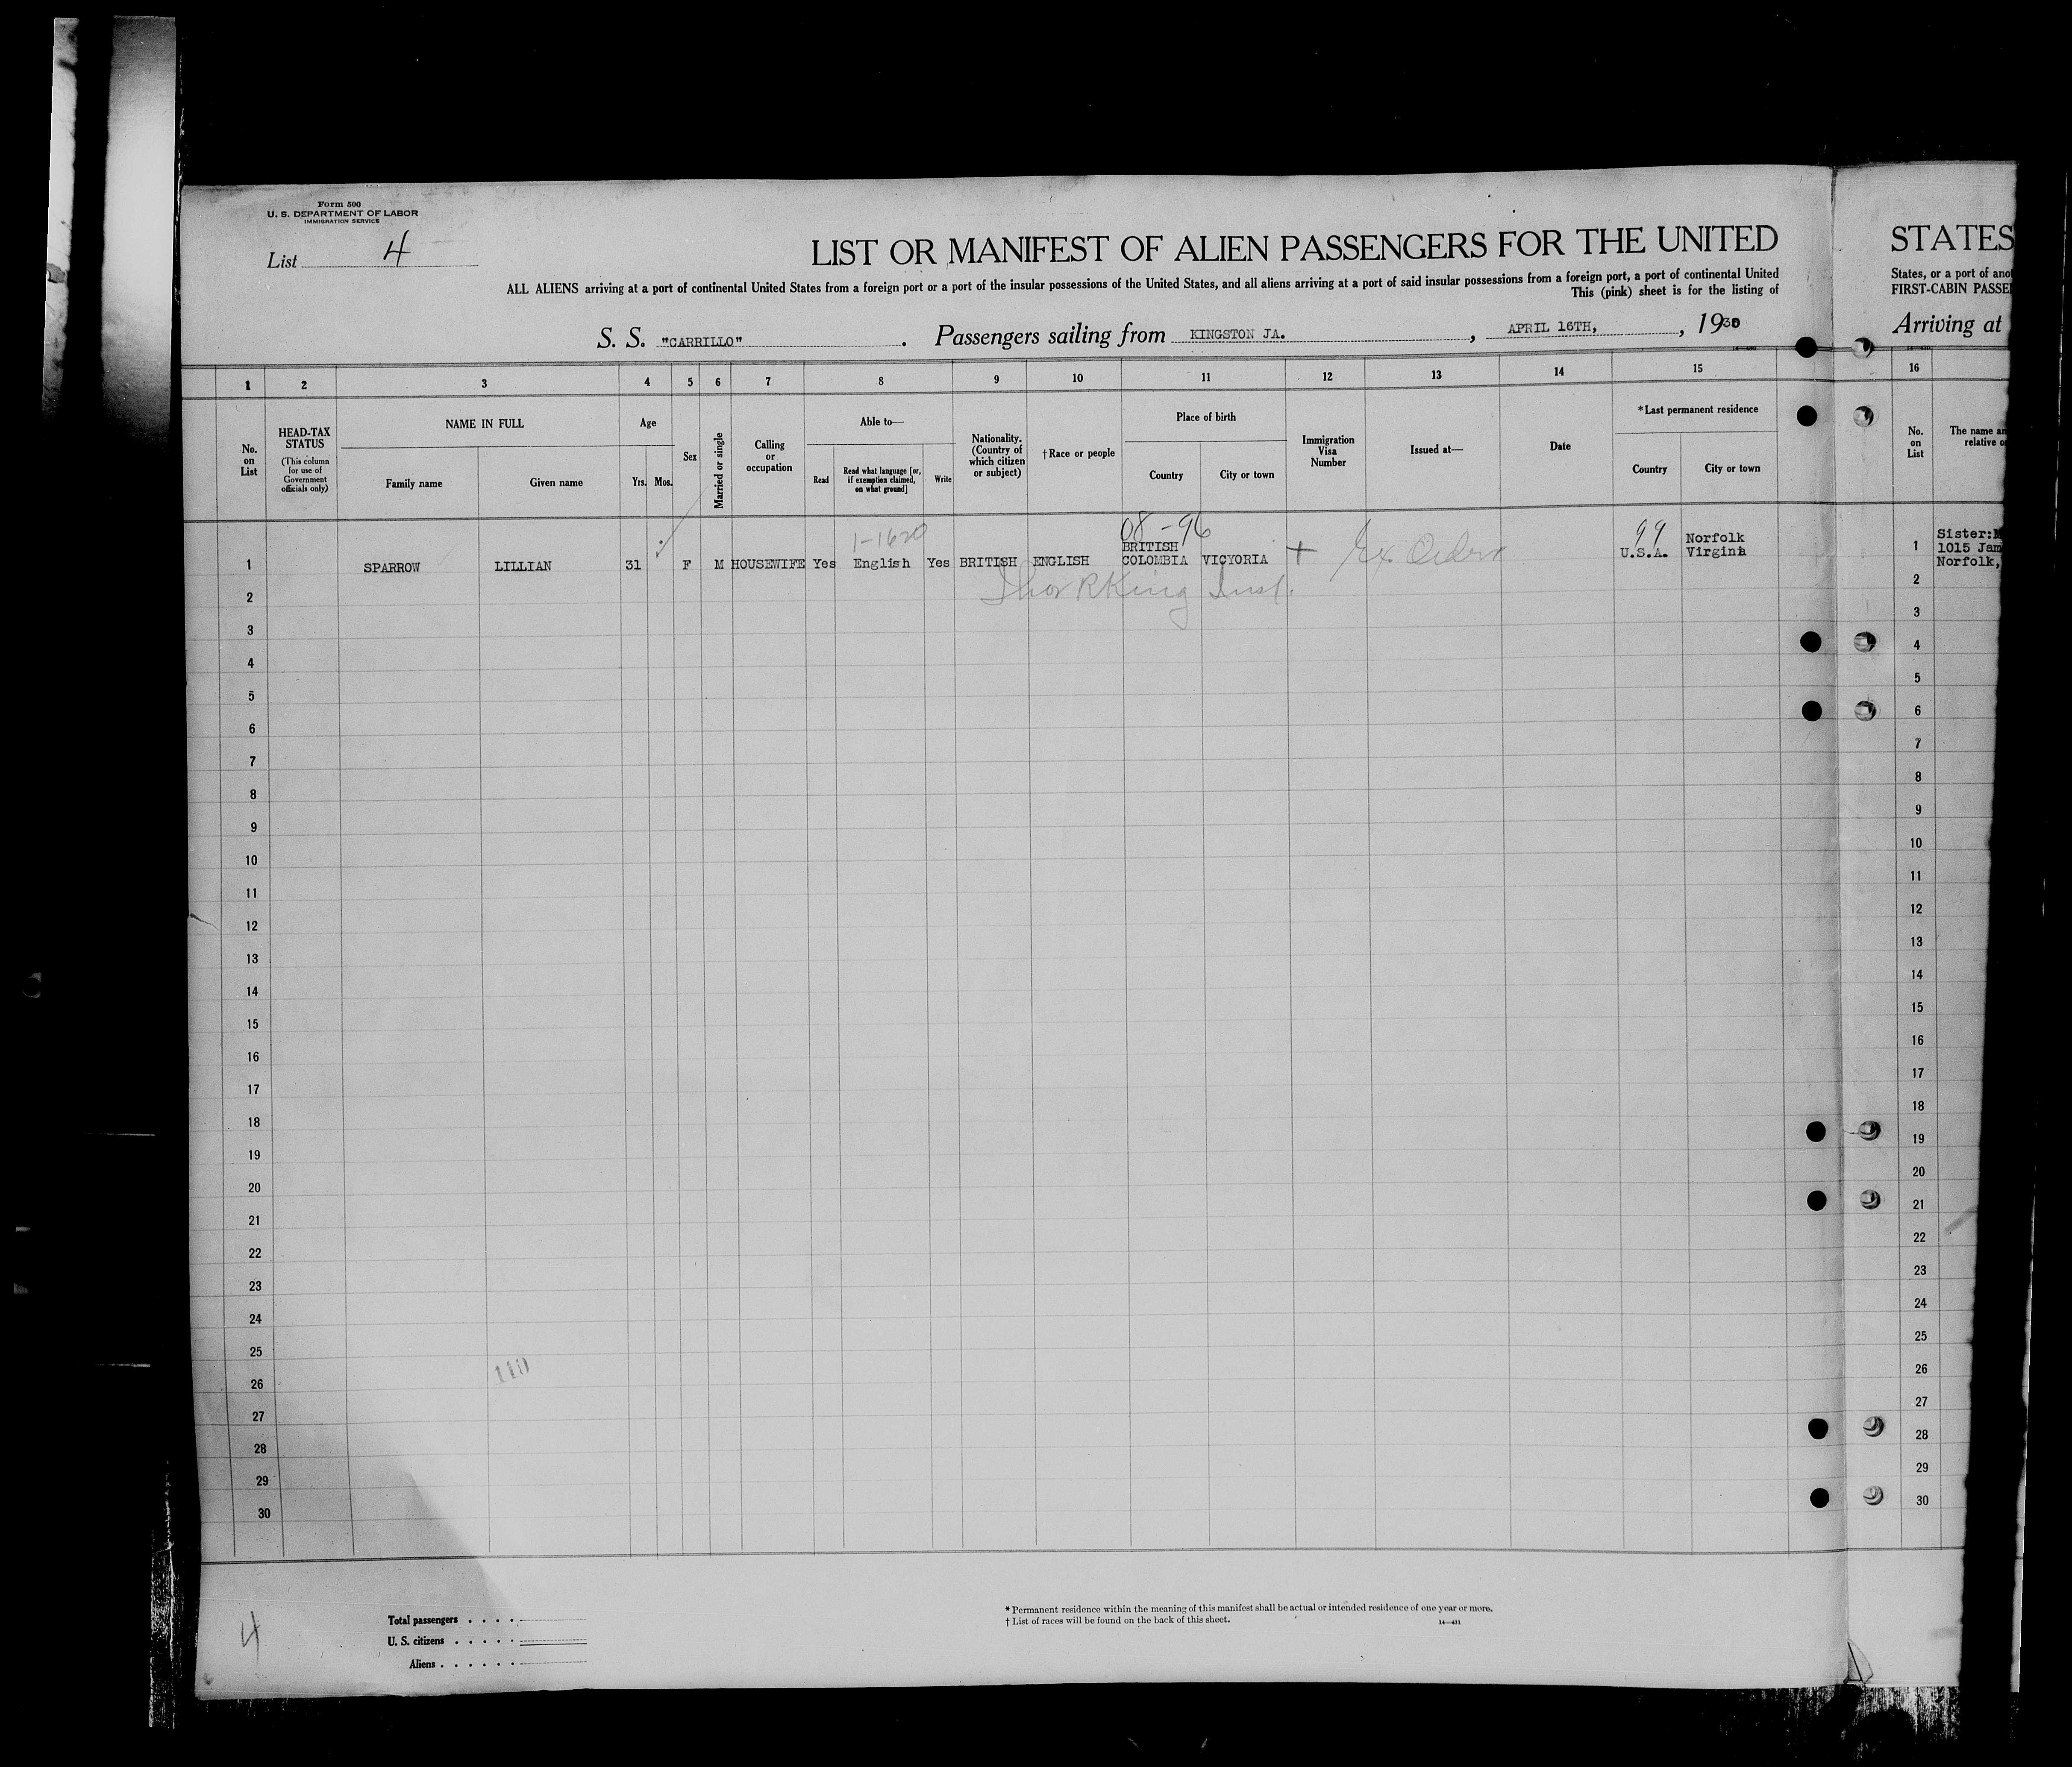 Form 500
U. S. DEPARTMENT OF LABOR
IMMIGRATION SERVICE
List 4
LIST OR MANIFEST OF ALIEN PASSENGERS FOR THE UNITED
ALL ALIENS arriving at a port of continental United States from a foreign port or a port of the insular possessions of the United States, and all aliens arriving at a port of said insular possessions from a foreign port, a port of continental United
This (pink) sheet is for the listing of
S. S. "CARRILLO". Passengers sailing from KINGSTON JA., APRIL 16TH, , 1930
STATES
States, or a port of
FIRST-CABIN
Arriving at
1 2 3 4 5 6 7 8 9 10 11 12 13 14 15
16
No. on List
HEAD-TAX STATUS
(This column for use of Government officials only)
NAME IN FULL
Family name
Given name
Age
Yrs. Mos.
Sex
Married or single
Calling or occupation
Able to—
Read
Read what language [or, if exemption claimed, on what ground]
Write
Nationality. (Country of which citizen or subject)
†Race or people
Place of birth
Country
City or town
Immigration Visa Number
Issued at—
Date
*Last permanent residence
Country
City or town
No. on List
The name
relative
1-1620
08-96
99
1 SPARROW LILLIAN 31 F M HOUSEWIFE Yes English Yes BRITISH ENGLISH BRITISH COLOMBIA VICYORIA + U.S.A. Norfolk Virgina
1 Sister:
1015
Norfolk,
2
3
4
5
6
7
8
9
10
11
12
13
14
15
16
17
18
19
20
21
22
23
24
25
26
27
28
29
30
2
3
4
5
6
7
8
9
10
11
12
13
14
15
16
17
18
19
20
21
22
23
24
25
26
27
28
29
30
110
4
Total passengers . . . .
U. S. citizens . . . . .
Aliens . . . . . .
* Permanent residence within the meaning of this manifest shall be actual or intended residence of one year or more.
† List of races will be found on the back of this sheet.